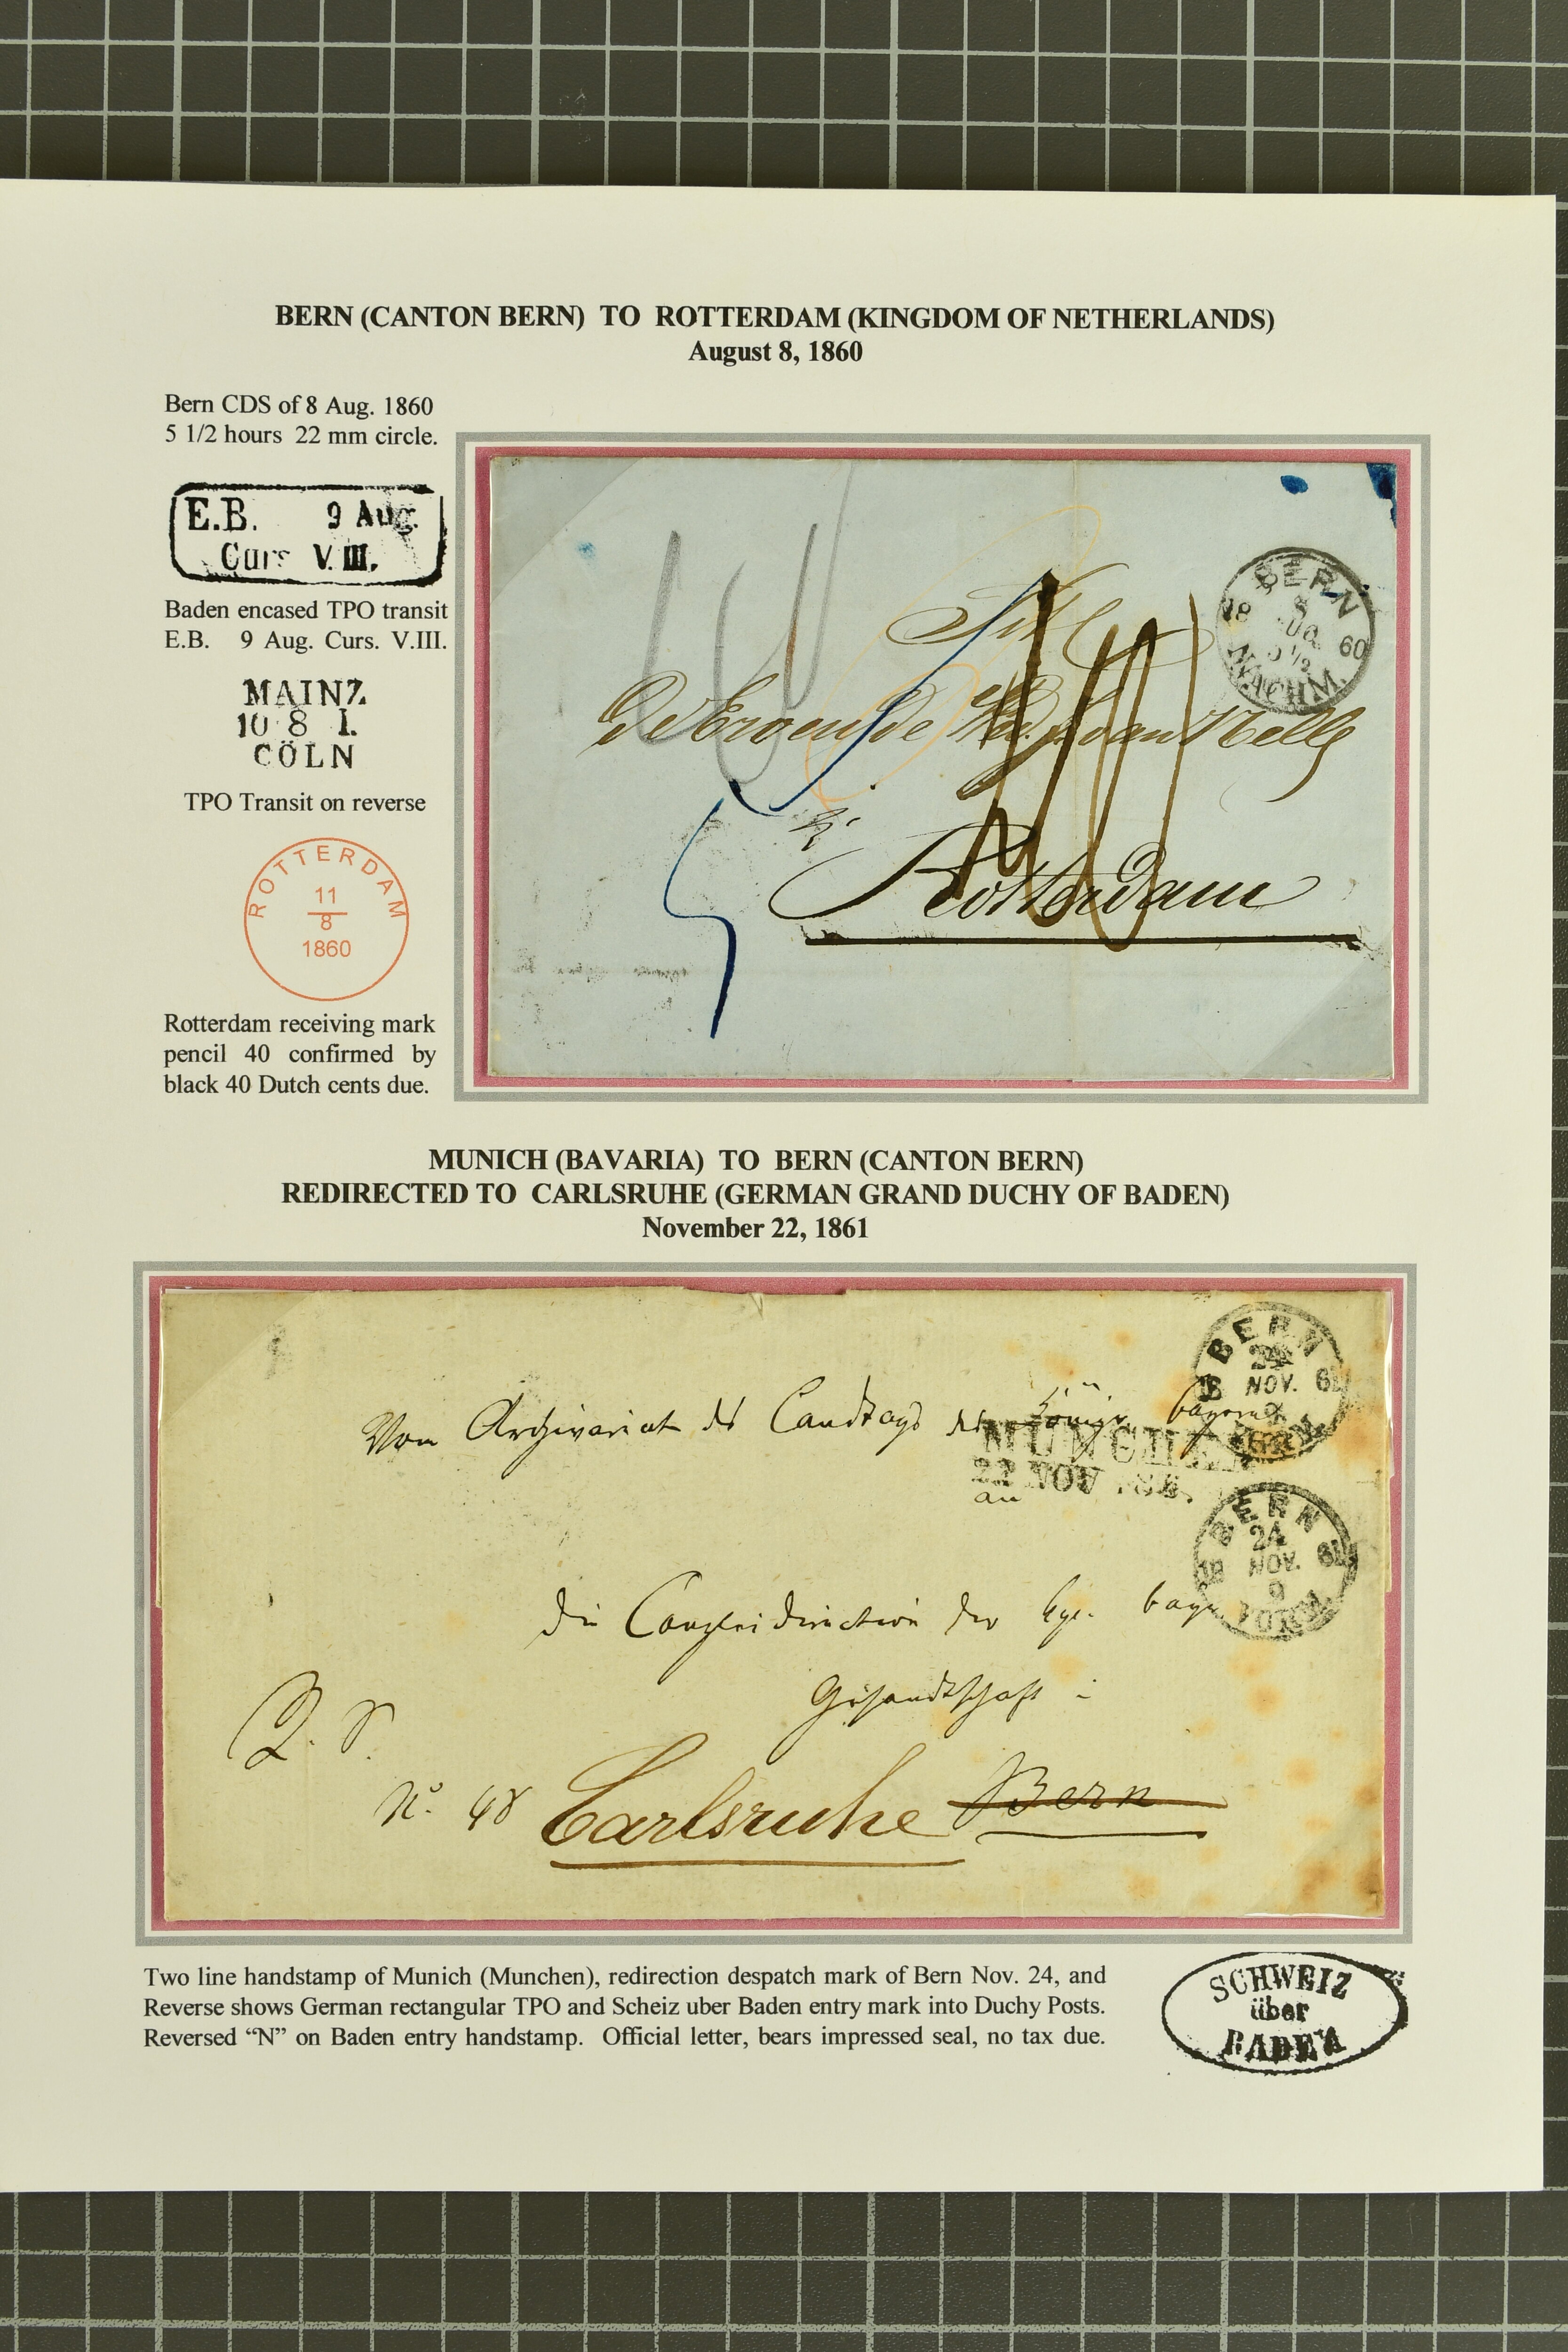 BERN (CANTON BERN) TO ROTTERDAM (KINGDOM OF NETHERLANDS)
August 8, 1860
Bern CDS of 8 Aug. 1860
5 1/2 hours 22 mm circle.
E.B. 9 Aug.
Curs V.III.
Baden encased TPO transit
E.B. 9 Aug. Curs. V.III.
MAINZ
10 8 I.
CÖLN
TPO Transit on reverse
ROTTERDAM
11
8
1860
Rotterdam receiving mark
pencil 40 confirmed by
black 40 Dutch cents due.
BERN
18 8 60
5 1/2
NACHM.
De Erven de Wed. J. van Nelle
Rotterdam
MUNICH (BAVARIA) TO BERN (CANTON BERN)
REDIRECTED TO CARLSRUHE (GERMAN GRAND DUCHY OF BADEN)
November 22, 1861
BERN
24
18 NOV. 61
Vom Archivariat des Landtags des Königr. bayern
MÜNCHEN
22 NOV
an
BERN
24
18 NOV. 61
9
VORM.
die Canzleidirection der kgl. bayr.
Gesandtschaft in
D. S.
No. 48 Carlsruhe Bern
Two line handstamp of Munich (Munchen), redirection despatch mark of Bern Nov. 24, and
Reverse shows German rectangular TPO and Scheiz uber Baden entry mark into Duchy Posts.
Reversed “N” on Baden entry handstamp. Official letter, bears impressed seal, no tax due.
SCHWEIZ
über
BADEN